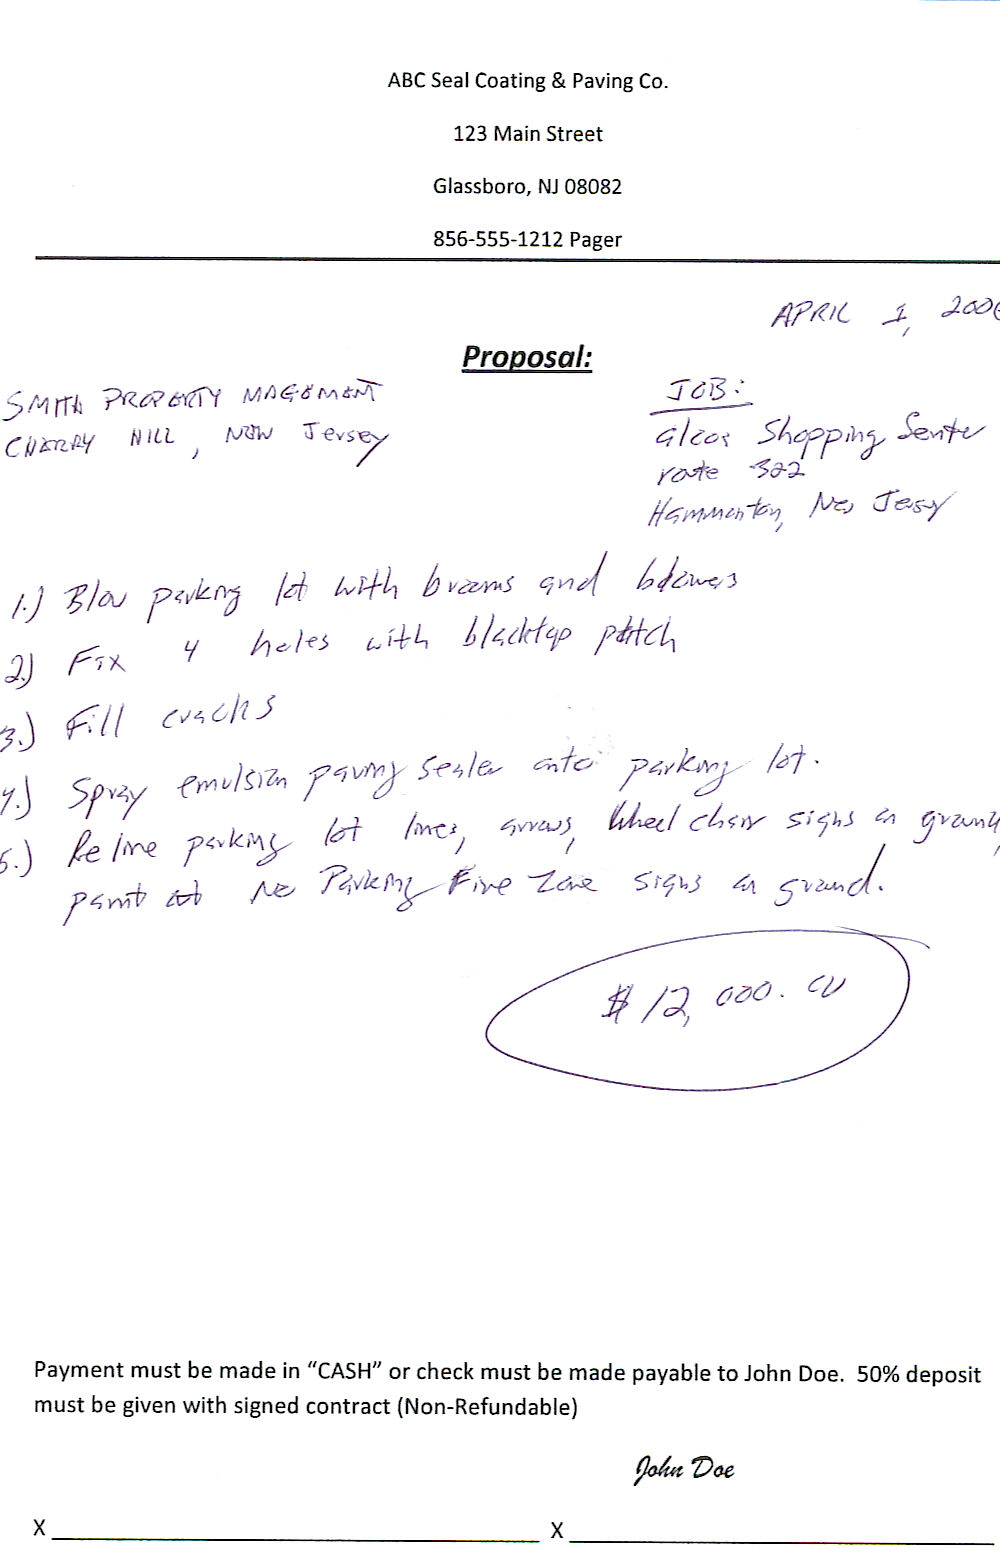 ABC Seal Coating & Paving Co.
123 Main Street
Glassboro, NJ 08082
856-555-1212 Pager
APRIL 1, 200
Proposal:
SMITH PROPERTY MAGEMENT
CHERRY HILL, NEW Jersey
JOB:
Shopping Senter
route 322
Hammonton, New Jersey
1.) Blow parking lot with brooms and blowers
2.) Fix 4 holes with blacktop patch
3.) Fill cracks
4.) Spray emulsion paving sealer onto parking lot.
5.) Reline parking lot lines, arrows, Wheel chair signs on ground,
paint at No Parking Fire Zone signs on ground.
$12,000.00
Payment must be made in “CASH” or check must be made payable to John Doe. 50% deposit
must be given with signed contract (Non-Refundable)
John Doe
X
X